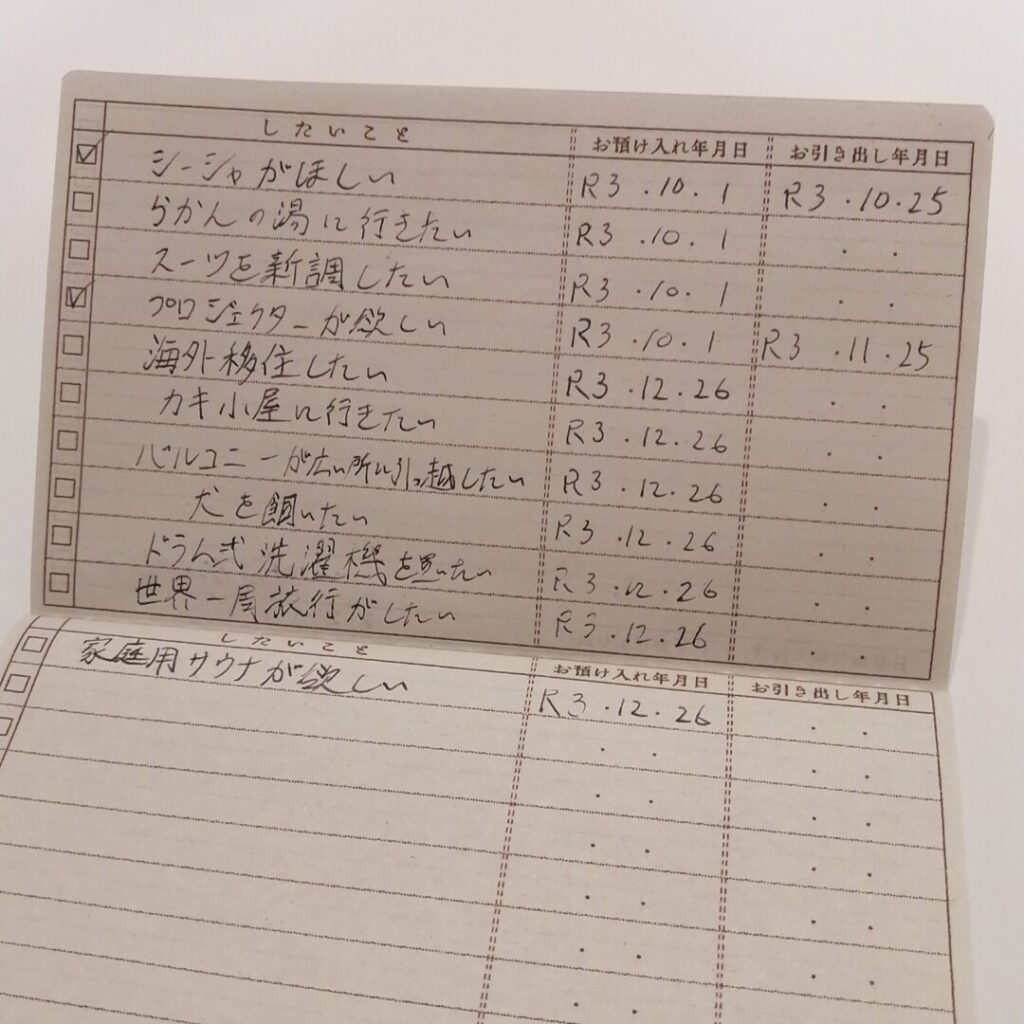 したいこと お預け入れ年月日 お引き出し年月日
シーシャがほしい R3.10.1 R3.10.25
らかんの湯に行きたい R3.10.1
スーツを新調したい R3.10.1
プロジェクターが欲しい R3.10.1 R3.11.25
海外移住したい R3.12.26
カキ小屋に行きたい R3.12.26
バルコニーが広い所に引っ越したい R3.12.26
犬を飼いたい R3.12.26
ドラム式洗濯機を買いたい R3.12.26
世界一周旅行がしたい R3.12.26
したいこと お預け入れ年月日 お引き出し年月日
家庭用サウナが欲しい R3.12.26